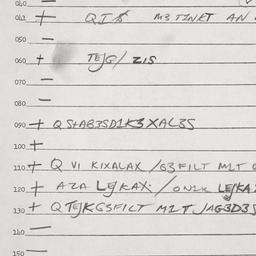 040 —
041 + QIS M3 TINKT AN
050 —
060 + TEJG/ ZIS
070 —
080 —
090 + Q StAB3SD1K3 XAL3S
100 +
110 + Q VI KIXALAX /G3FILT M1T
120 + AZA LEJKAX. / ON1K LEJKA
130 + Q TEJKGSFILCT M1T JAG3D3S
140 —
150